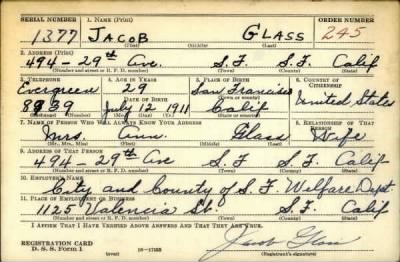 SERIAL NUMBER 1. NAME (Print) ORDER NUMBER
1377 JACOB GLASS 245
(First) (Middle) (Last)
2. ADDRESS (Print)
494-29th Ave. S.F. S.F. Calif
(Number and street or R. F. D. number) (Town) (County) (State)
3. TELEPHONE 4. AGE IN YEARS 5. PLACE OF BIRTH 6. COUNTRY OF CITIZENSHIP
Evergreen 29 San Francisco United States
DATE OF BIRTH
8939 July 12 1911 Calif
(Exchange) (Number) (Mo.) (Day) (Yr.) (State or country)
7. NAME OF PERSON WHO WILL ALWAYS KNOW YOUR ADDRESS 8. RELATIONSHIP OF THAT PERSON
Mrs. Ann Glass Wife
(Mr., Mrs., Miss) (First) (Middle) (Last)
9. ADDRESS OF THAT PERSON
494-29th Ave S.F. S.F. Calif
(Number and street or R. F. D. number) (Town) (County) (State)
10. EMPLOYER'S NAME
City and County of S.F. Welfare Dept
11. PLACE OF EMPLOYMENT OR BUSINESS
1125 Valencia St. S.F. Calif
(Number and street or R. F. D. number) (Town) (County) (State)
I AFFIRM THAT I HAVE VERIFIED ABOVE ANSWERS AND THAT THEY ARE TRUE.
Jacob Glass
REGISTRATION CARD
D. S. S. Form 1 16-17105 (Registrant's signature)